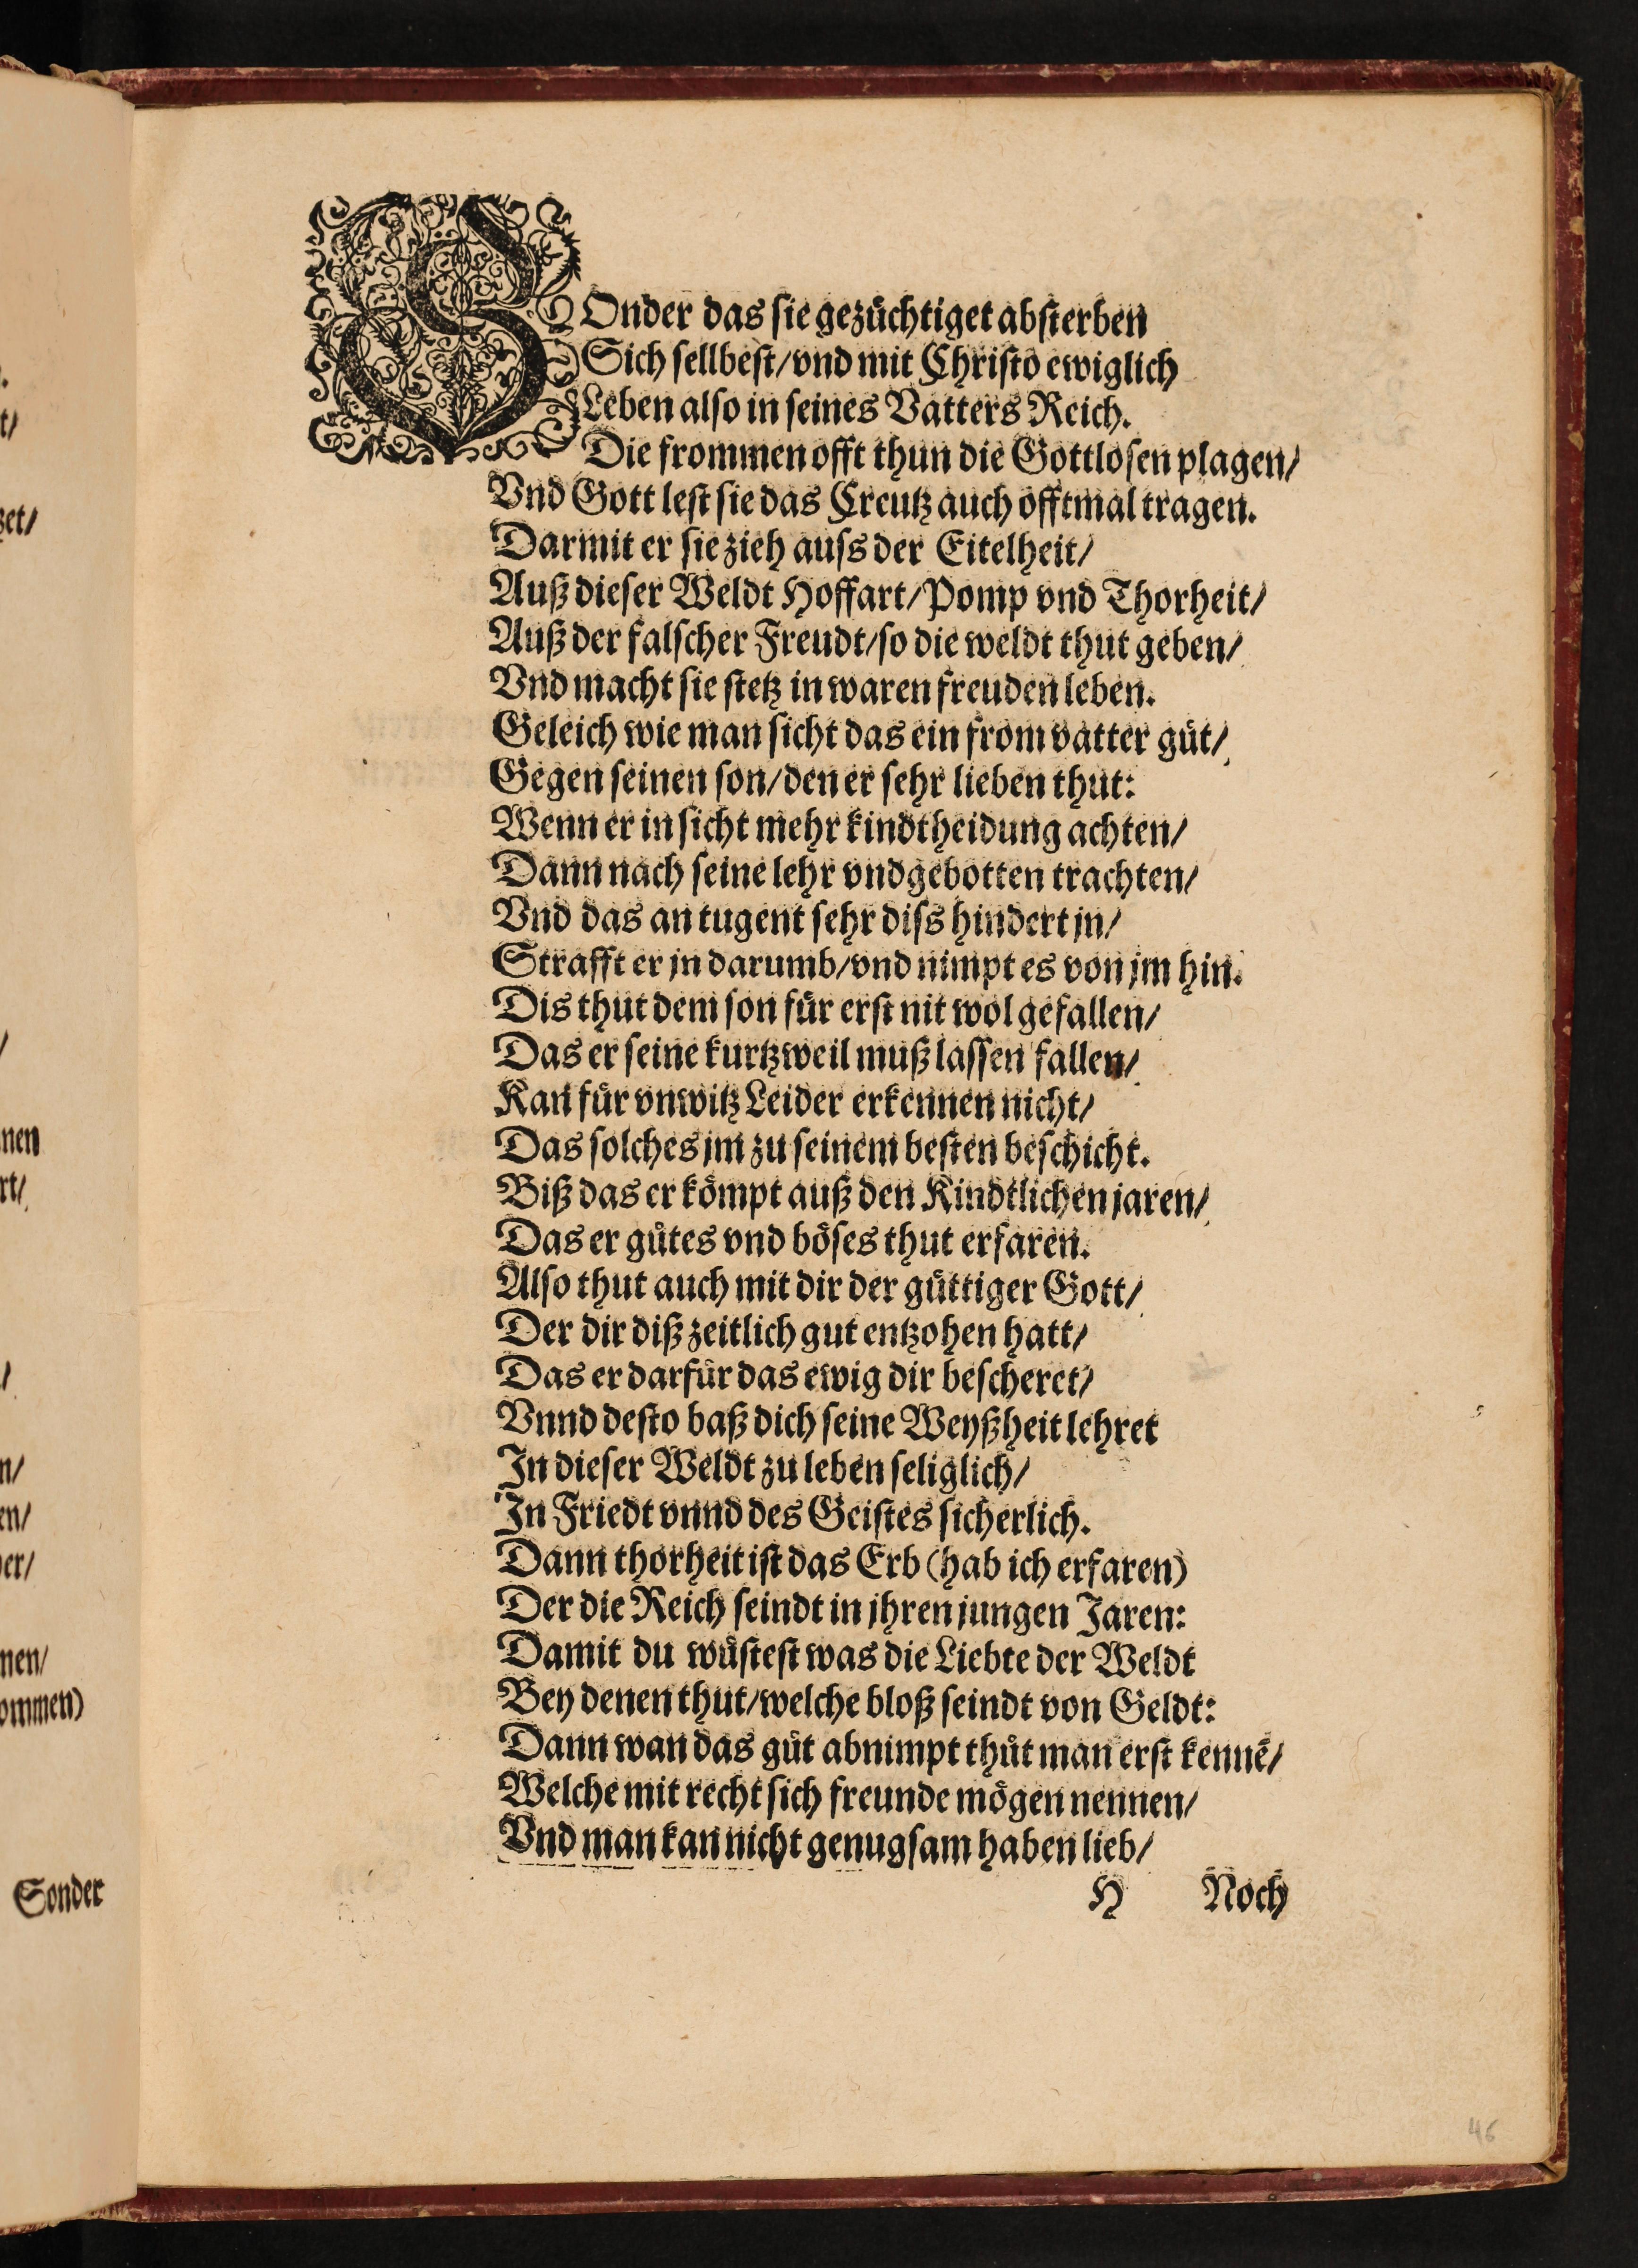 SOnder das sie gezüchtiget absterben
Sich sellbest/vnd mit Christo ewiglich
Leben also in seines Vatters Reich.
Die frommen offt thun die Gottlosen plagen/
Vnd Gott lest sie das Creutz auch offtmal tragen.
Darmit er sie zieh auss der Eitelheit/
Auß dieser Weldt Hoffart/Pomp vnd Thorheit/
Auß der falscher Freudt/so die weldt thut geben/
Vnd macht sie stetz in waren freuden leben.
Geleich wie man sicht das ein from vatter güt/
Gegen seinen son/den er sehr lieben thut:
Wenn er in sicht mehr kindtheidung achten/
Dann nach seine lehr vnd gebotten trachten/
Vnd das an tugent sehr diss hindert jn/
Strafft er jn darumb/vnd nimpt es von jm hin.
Dis thut dem son für erst nit wol gefallen/
Das er seine kurtzweil muß lassen fallen/
Kan für vnwitz Leider erkennen nicht/
Das solches jm zu seinem besten beschicht.
Biß das er kömpt auß den Kindtlichen jaren/
Das er gütes vnd böses thut erfaren.
Also thut auch mit dir der güttiger Gott/
Der dir diß zeitlich gut entzohen hatt/
Das er darfür das ewig dir bescheret/
Vnnd desto baß dich seine Weyßheit lehret
In dieser Weldt zu leben seliglich/
In Friedt vnnd des Geistes sicherlich.
Dann thorheit ist das Erb (hab ich erfaren)
Der die Reich seindt in jhren jungen Jaren:
Damit du wüstest was die Liebte der Weldt
Bey denen thut/welche bloß seindt von Geldt:
Dann wan das güt abnimpt thüt man erst kennē/
Welche mit recht sich freunde mögen nennen/
Vnd man kan nicht genugsam haben lieb/
H Noch
46
.
t/
zet/
/
nen
rt/
/
n/
en/
er/
nen/
ommen)
Sonder